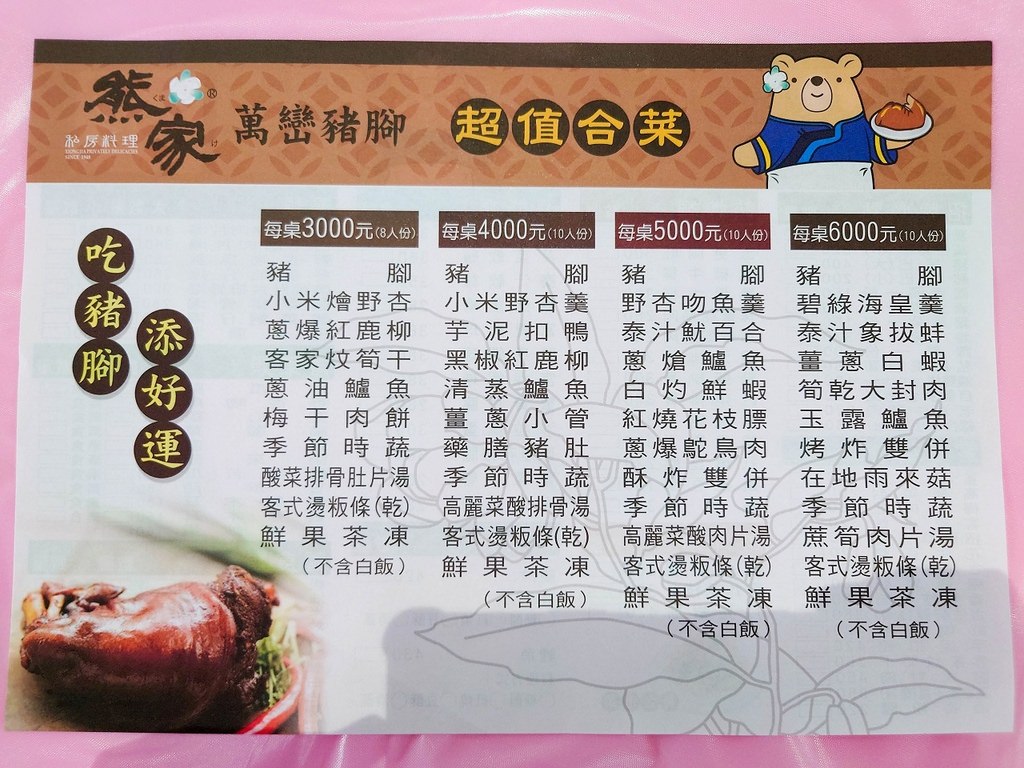 熊家
くま
け
®
私房料理
XIONGJIA PRIVATELY DELICACIES
SINCE 1948
萬巒豬腳
超值合菜
吃豬腳
添好運
每桌3000元(8人份)
豬腳
小米燴野杏
蔥爆紅鹿柳
客家炆筍干
蔥油鱸魚
梅干肉餅
季節時蔬
酸菜排骨肚片湯
客式燙粄條(乾)
鮮果茶凍
(不含白飯)
每桌4000元(10人份)
豬腳
小米野杏羹
芋泥扣鴨
黑椒紅鹿柳
清蒸鱸魚
薑蔥小管
藥膳豬肚
季節時蔬
高麗菜酸排骨湯
客式燙粄條(乾)
鮮果茶凍
(不含白飯)
每桌5000元(10人份)
豬腳
野杏吻魚羹
泰汁魷百合
蔥熗鱸魚
白灼鮮蝦
紅燒花枝膘
蔥爆鴕鳥肉
酥炸雙併
季節時蔬
高麗菜酸肉片湯
客式燙粄條(乾)
鮮果茶凍
(不含白飯)
每桌6000元(10人份)
豬腳
碧綠海皇羹
泰汁象拔蚌
薑蔥白蝦
筍乾大封肉
玉露鱸魚
烤炸雙併
在地雨來菇
季節時蔬
蔗筍肉片湯
客式燙粄條(乾)
鮮果茶凍
(不含白飯)